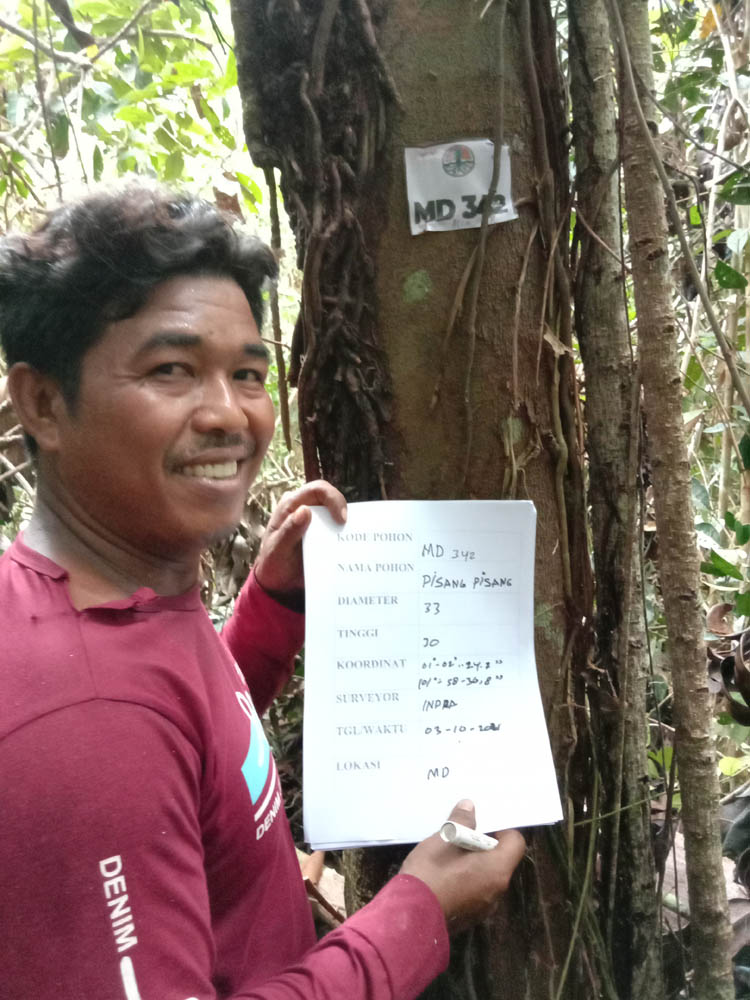 MD 342
KODE POHON MD 342
NAMA POHON PISANG PISANG
DIAMETER 33
TINGGI 30
KOORDINAT 01°-02'-24.2"
101°-58-30,8"
SURVEYOR INDRA
TGL/WAKTU 03-10-2021
LOKASI MD
DENIM
DENIM